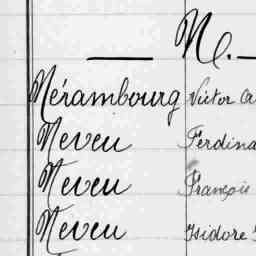 N.
Nérambourg Victor
Neveu Ferdina
Neveu François
Neveu Isidore